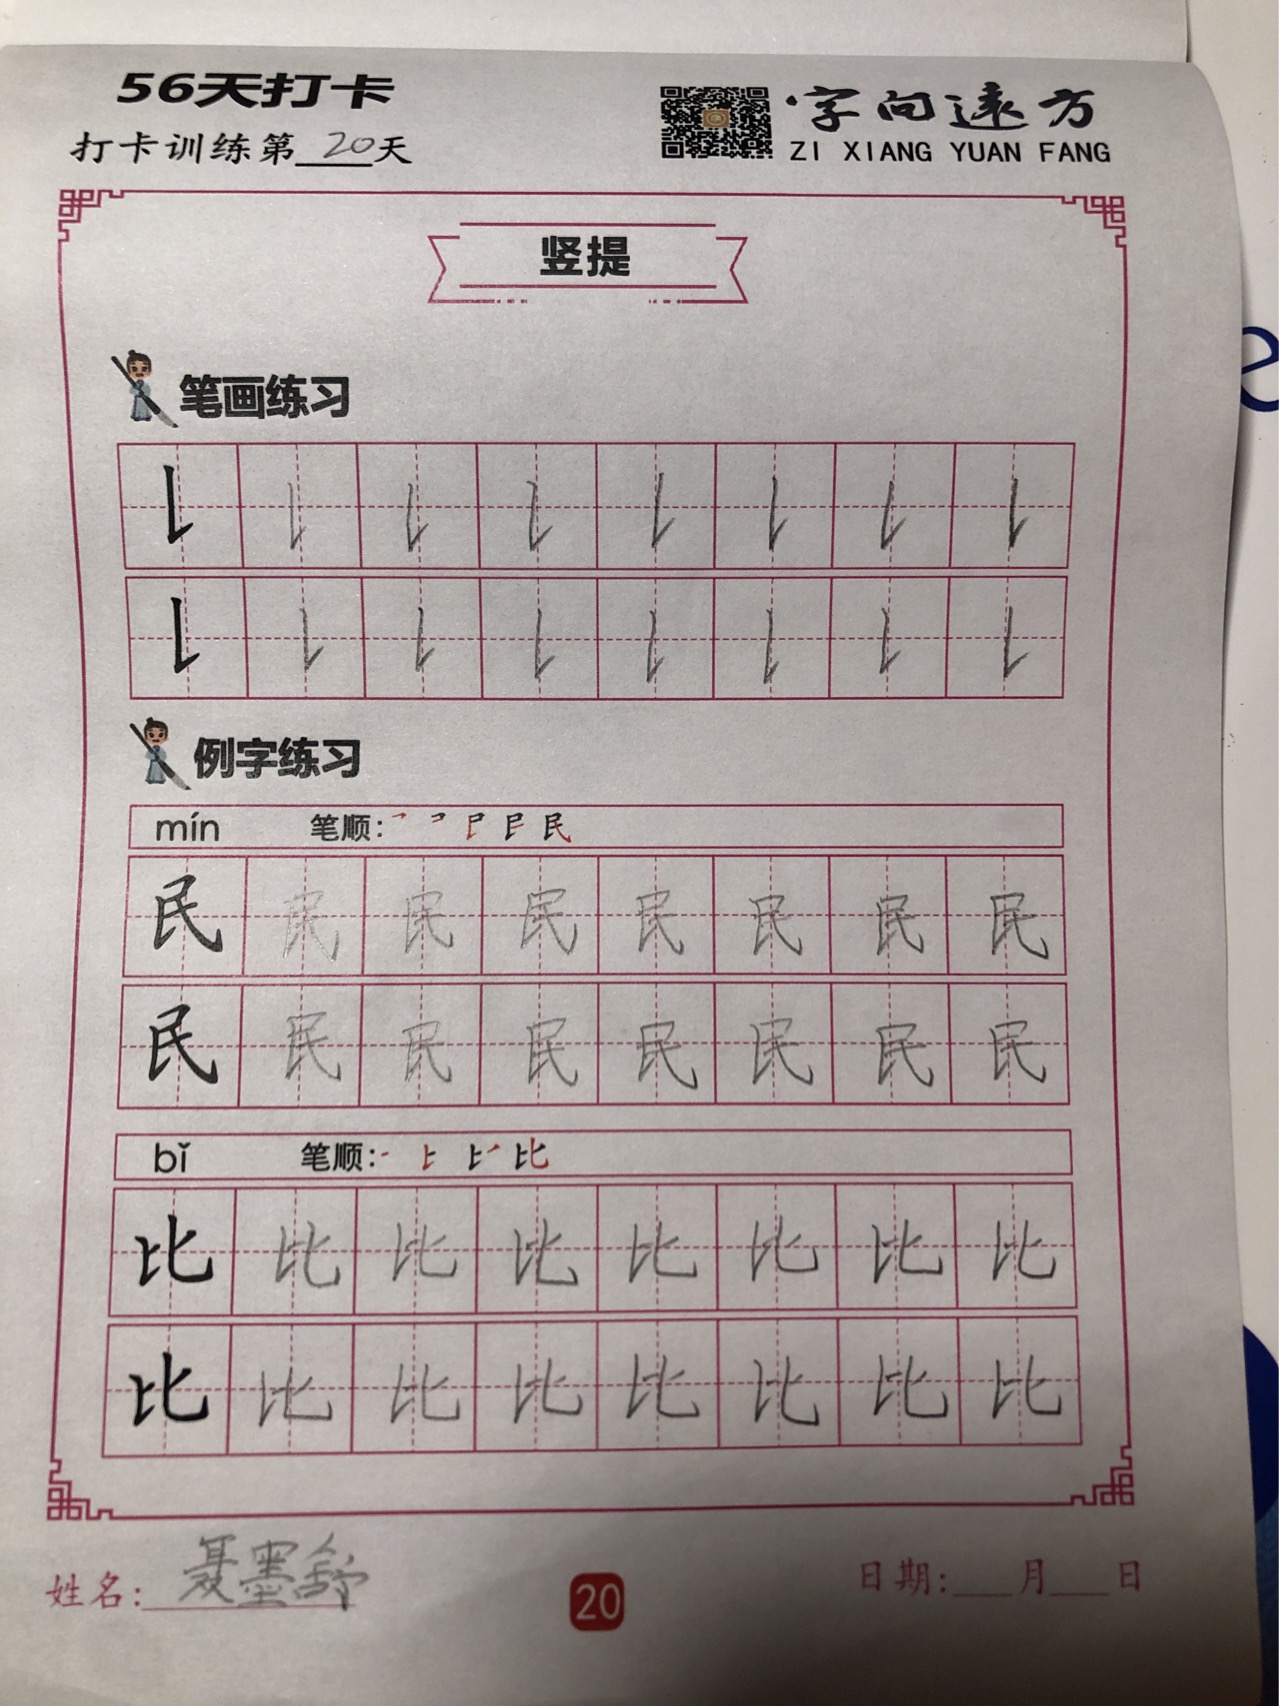 56天打卡
打卡训练第20天
字向远方
ZI XIANG YUAN FANG
竖提
笔画练习
例字练习
mín 笔顺:
民 民 民 民 民 民 民 民
民 民 民 民 民 民 民 民
bǐ 笔顺: 比
比 比 比 比 比 比 比 比
比 比 比 比 比 比 比 比
姓名: 聂墨舒
20
日期:___月___日